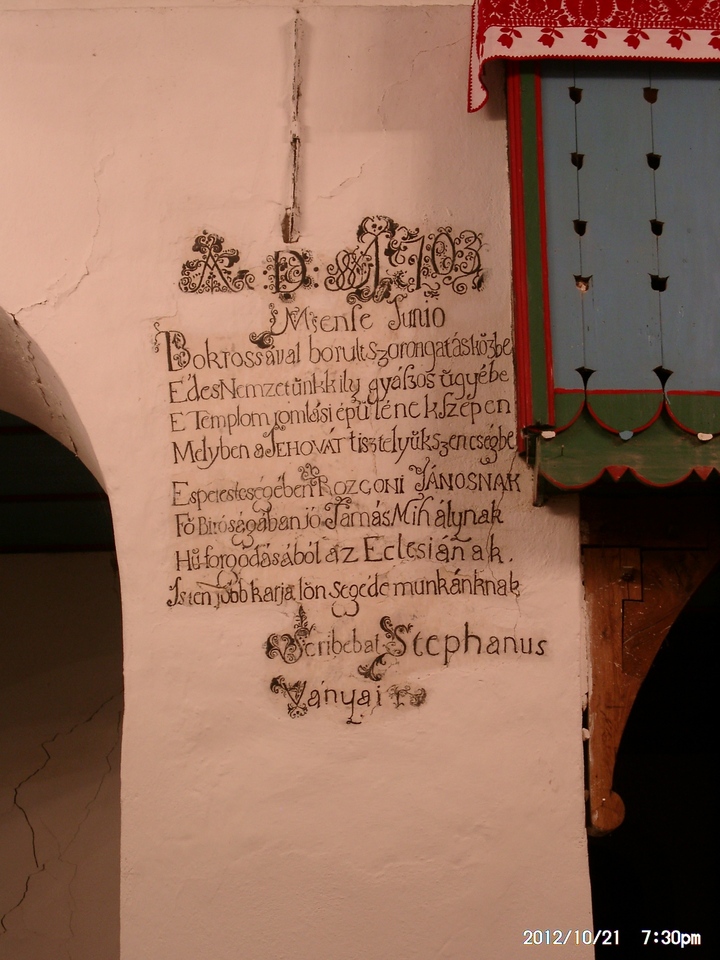 A. D: 1703.
Mense Junio
Bokrossával borult szorongatás közbe
Édes Nemzetünkk ily gyászos ügyébe
E Templom romlási épülének szépen
Melyben a JEHOVÁT tisztelyük szencségbe
Esperestségében ROZGONI JÁNOSNAK
Fő Biróságában jó Tamás Mihálynak
Hű forgodásából az Eclesiának.
Isten jobb karja lön segéde munkánknak
Scribebat Stephanus
Ványai
2012/10/21 7:30pm